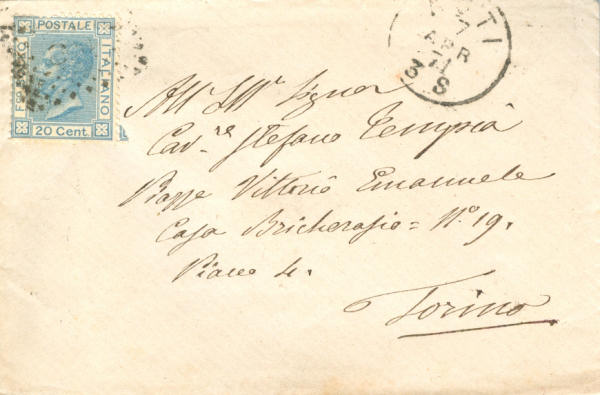 FCO BOLLO POSTALE ITALIANO
20 Cent.
7
APR
71
3 S
All' Ill. Signor
Cav.re Stefano Tempia
Piazza Vittorio Emanuele
Casa Bricherasio = N.o 19.
Piano 4.
Torino